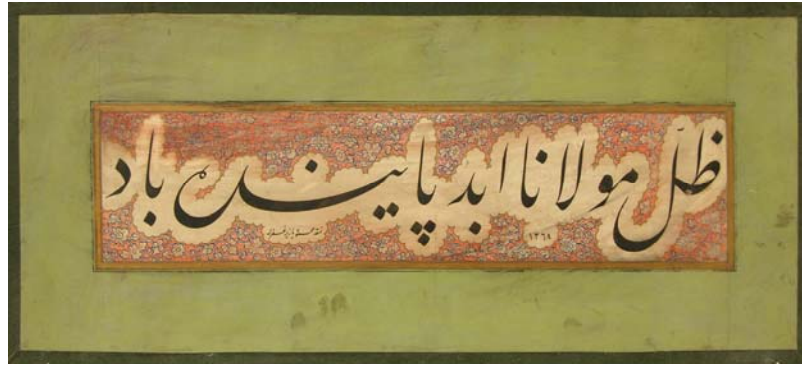 ظلّ مولانا ابد پاینده باد
١٣٦٩